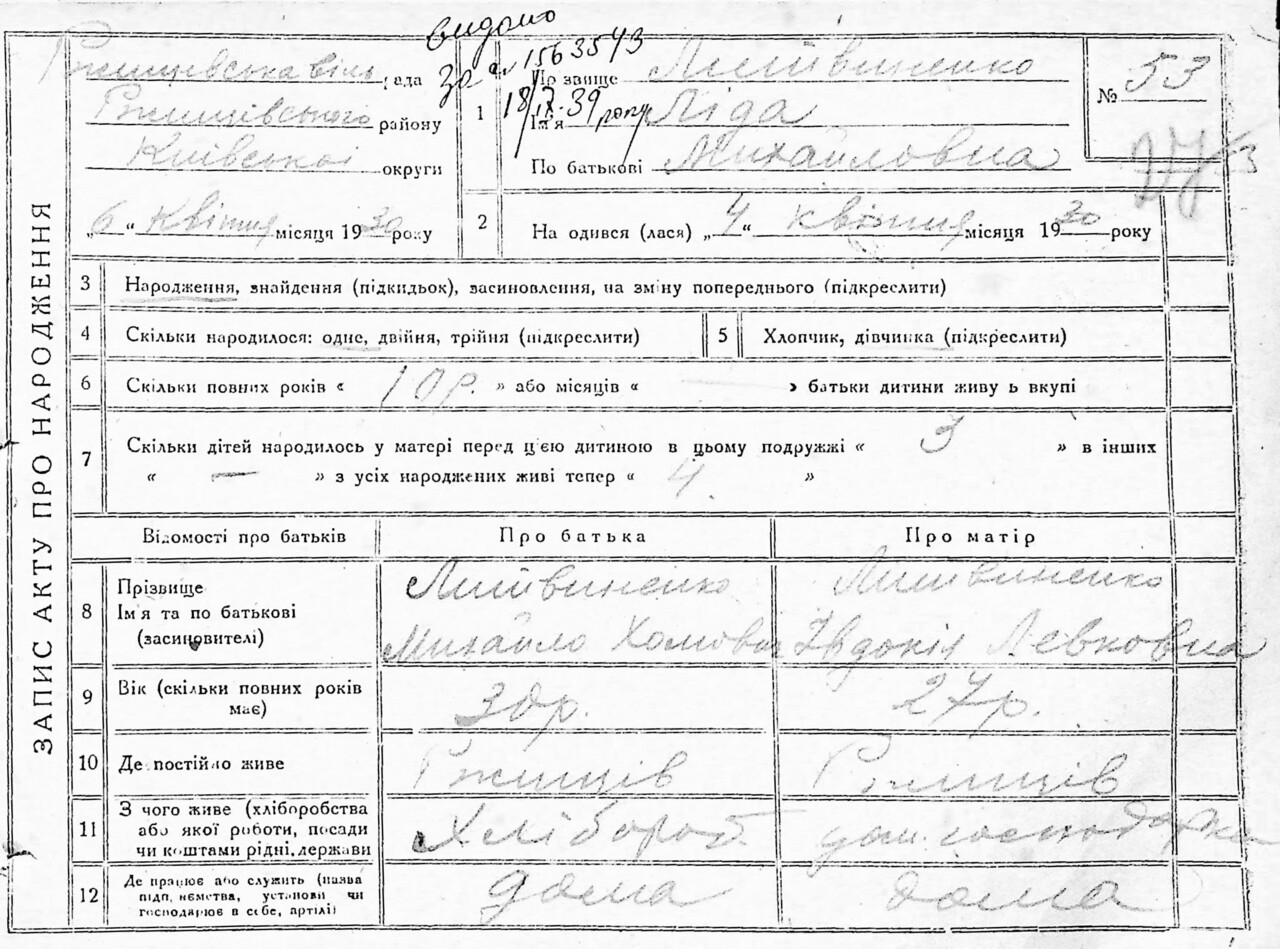 ЗАПИС АКТУ ПРО НАРОДЖЕННЯ
видано
за № 1563543
18/IX-39 року
Ржищівська сіль рада
Ржищівського району
Київської округи
„6“ Квітня місяця 1930 року
1
Прізвище Литвиненко
Ім'я Ліда
По батькові Михайловна
№ 53
2
На одився (лася) „4“ квітня місяця 1930 року
3
Народження, знайдення (підкидьок), засиновлення, на зміну попереднього (підкреслити)
4
Скільки народилося: одне, двійня, трійня (підкреслити)
5
Хлопчик, дівчинка (підкреслити)
6
Скільки повних років « 10 р. » або місяців « — » батьки дитини живу ь вкупі
7
Скільки дітей народилось у матері перед цією дитиною в цьому подружжі « 3 » в інших
« — » з усіх народжених живі тепер « 4. »
Відомості про батьків
Про батька
Про матір
8
Прізвище
Ім'я та по батькові
(засиновителі)
Литвиненко
Михайло Хомович
Литвиненко
Євдокія Левковна
9
Вік (скільки повних років
має)
30 р.
27 р.
10
Де постійно живе
Ржищів
Ржищів
11
З чого живе (хліборобства
або якої роботи, посади
чи коштами рідні, держави
Хлібороб
дом. господарка
12
Де працює або служить (назва
підп ємства, установи чи
господарює в себе, артілі)
дома
дома